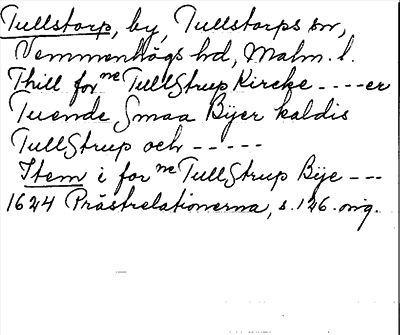 Tullstorp, by, Tullstorps sn,
Vemmenhögs hd, Malm. l.
Thill forne TullStrup Kircke ----er
Tuende Smaa Byer kaldis
TullStrup och -----
Item i forne TullStrup Bye ---
1624 Prästrelationerna, s. 126. orig.